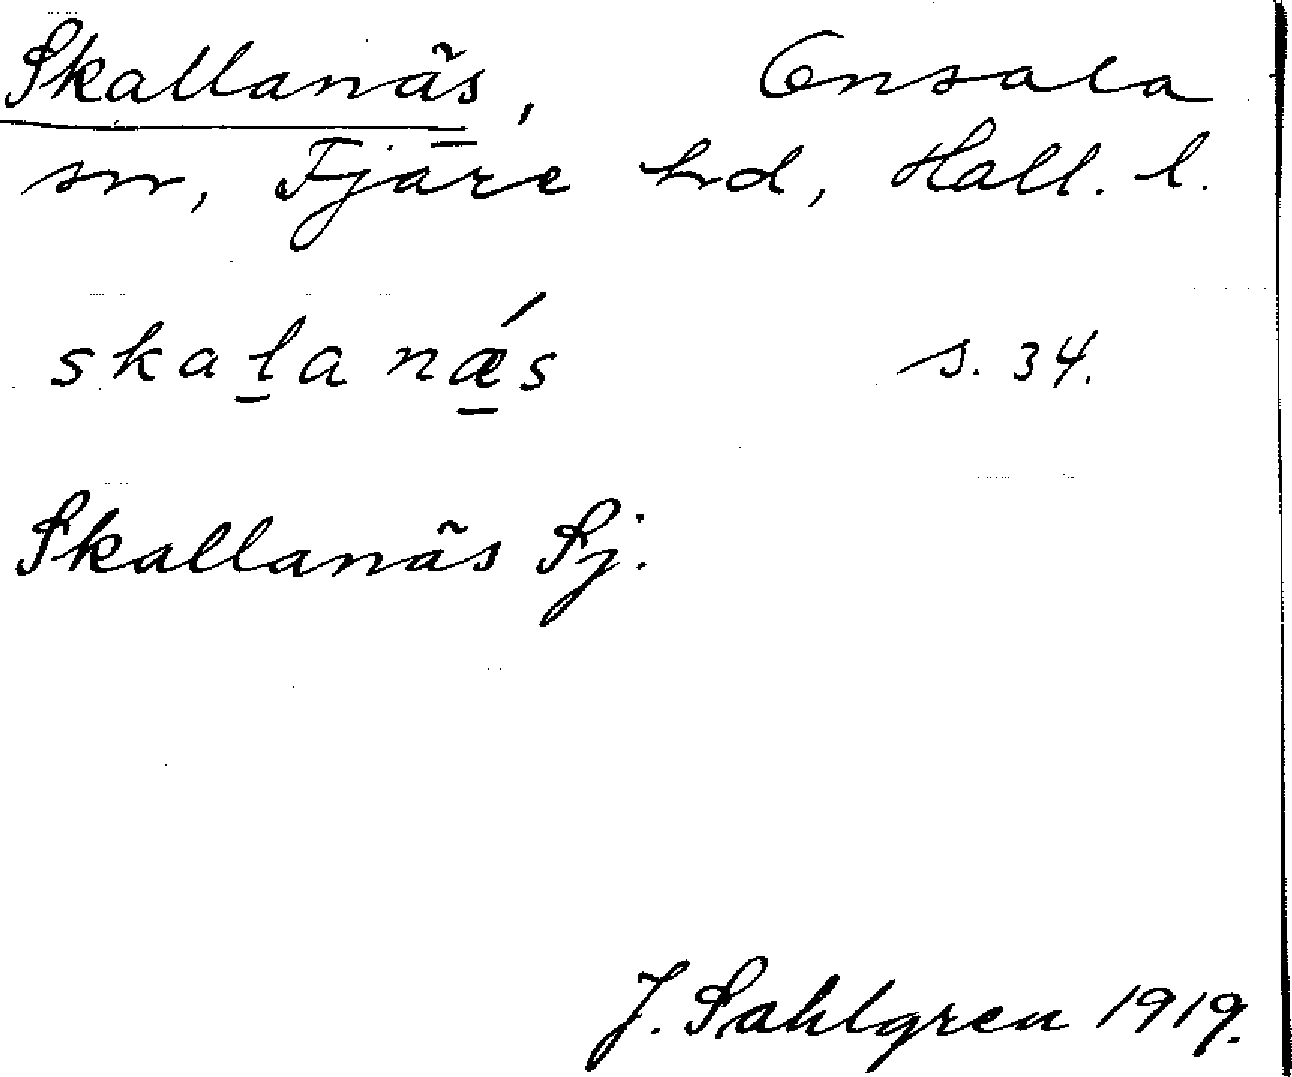 Skallanäs, Onsala
sn, Fjäre hd, Hall. l.
skaḻanǽ̱s s. 34.
Skallanäs Sj.
J. Sahlgren 1919.